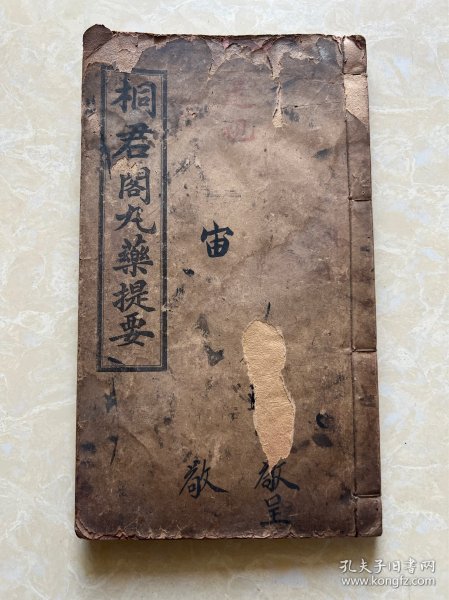 桐君閣丸藥提要
宙
敬呈
敬
孔夫子旧书网
www.kongfz.com